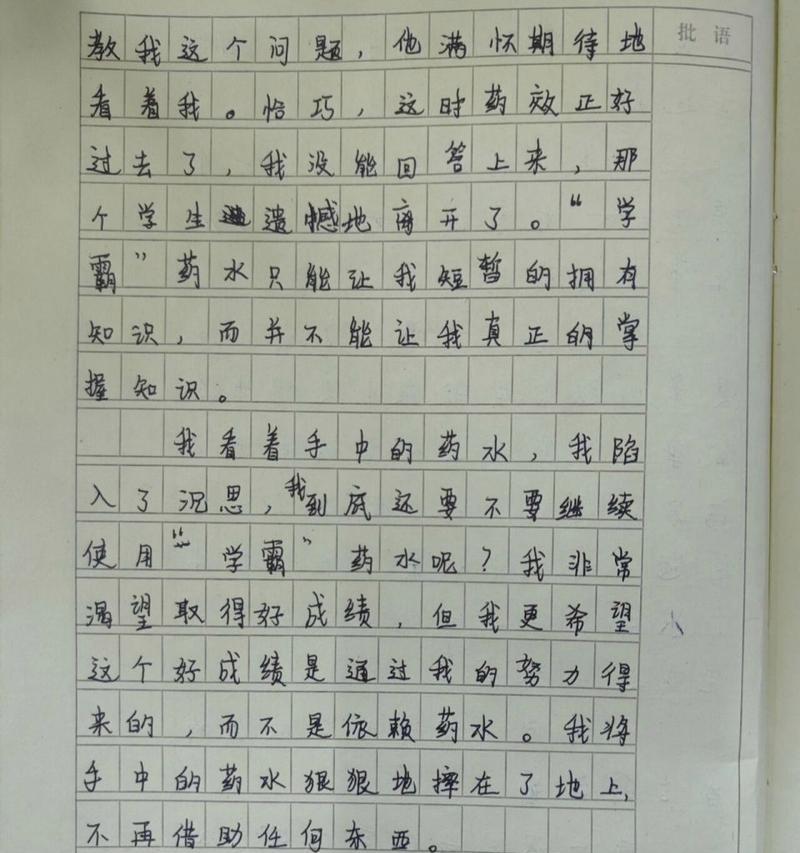 批语
教我这个问题，他满怀期待地
看着我。恰巧，这时药效正好
过去了，我没能回答上来，那
个学生遗憾地离开了。“学
霸”药水只能让我短暂的拥有
知识，而并不能让我真正的掌
握知识。
我看着手中的药水，我陷
入了沉思，我到底还要不要继续
使用“学霸”药水呢？我非常
渴望取得好成绩，但我更希望
这个好成绩是通过我的努力得
来的，而不是依赖药水。我将
手中的药水狠狠地摔在了地上，
不再借助任何东西。